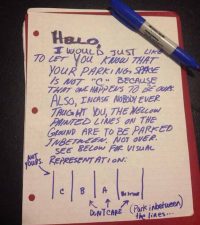 HELLO,
I WOULD JUST LIKE
TO LET YOU KNOW THAT
YOUR PARKING SPACE
IS NOT "C" BECAUSE
THAT ONE HAPPENS TO BE OURS.
ALSO, INCASE NOBODY EVER
TAUGHT YOU, THE YELLOW
PAINTED LINES ON THE
GROUND ARE TO BE PARKED
INBETWEEN, NOT OVER.
SEE BELOW FOR VISUAL
REPRESENTATION.
NOT YOURS.
C B A
DON'T CARE
(Park inbetween)
the lines...